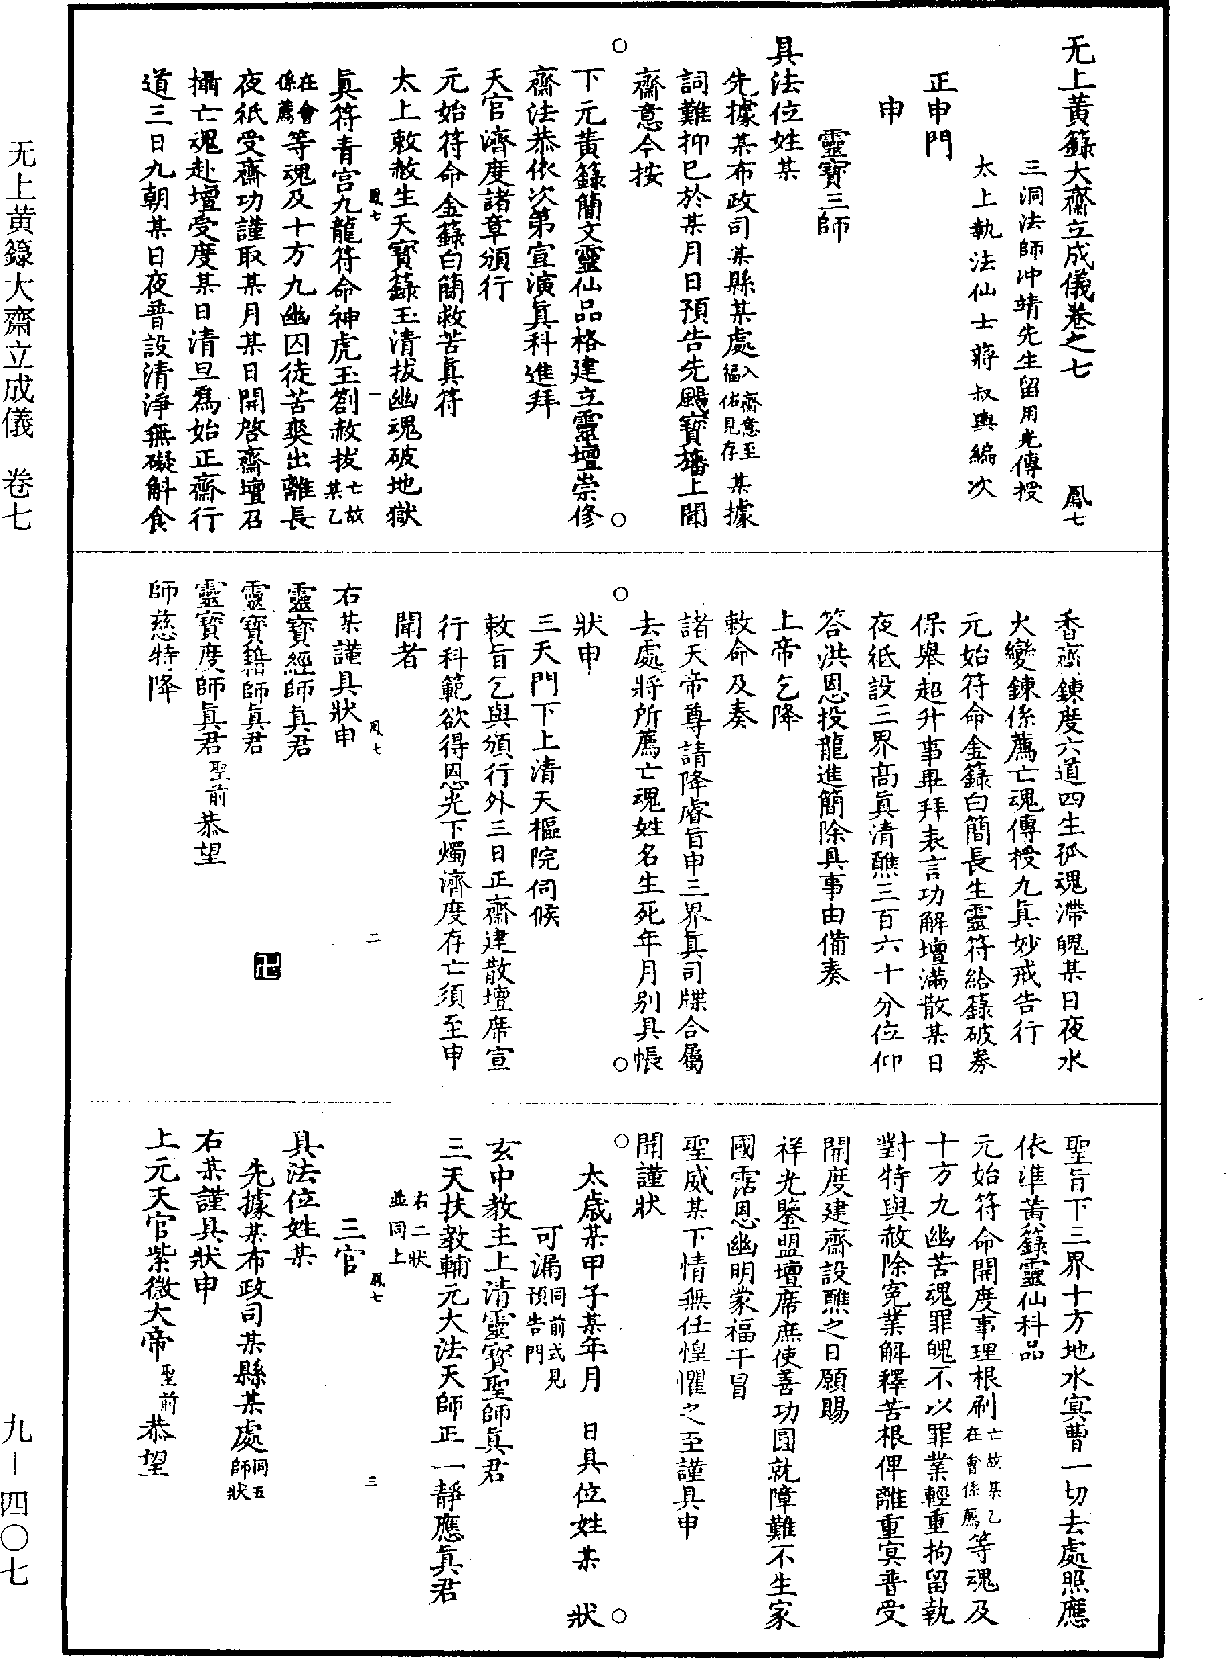 无上黄籙大齋立成儀卷之七　鳳七
三洞法師沖靖先生留用光傳授
太上執法仙士蔣叔輿編次
正申門
申
靈寶三師
具法位姓某
先據某布政司某縣某處入齋意至福佑見存某據
詞難抑已於某月日預告先颺寶旛上聞
齋意今按
下元黃籙簡文靈仙品格建立靈壇崇修
齋法恭依次第宣演真科進拜
天官濟度諸章頒行
元始符命金籙白簡救苦真符
太上敕赦生天寶籙玉清拔幽魂破地獄
鳳七　一
真符青宮九龍符命神虎玉劄赦拔亡故某乙
在會係薦等魂及十方九幽囚徒苦爽出離長
夜祇受齋功謹取某月某日開啓齋壇召
攝亡魂赴壇受度某日清旦爲始正齋行
道三日九朝某日夜普設清淨無礙斛食
香齋鍊度六道四生孤魂滯魄某日夜水
火變鍊係薦亡魂傳授九真妙戒告行
元始符命金籙白簡長生靈符給籙破券
保舉超升事畢拜表言功解壇滿散某日
夜祇設三界高真清醮三百六十分位仰
答洪恩投龍進簡除具事由備奏
上帝乞降
敕命及奏
諸天帝尊請降睿旨申三界真司牒合屬
去處將所薦亡魂姓名生死年月别具帳
狀申
三天門下上清天樞院伺候
敕旨乞與頒行外三日正齋建散壇席宣
行科範欲得恩光下燭濟度存亡須至申
聞者
鳳七　二
右某謹具狀申
靈寶經師真君
靈寶籍師真君
靈寶度師真君聖前恭望
師慈特降
聖旨下三界十方地水冥曹一切去處照應
依準黃籙靈仙科品
元始符命開度事理根刷亡故某乙在會係薦等魂及
十方九幽苦魂罪魄不以罪業輕重拘留執
對特與赦除冤業解釋苦根俾離重冥普受
開度建齋設醮之日願賜
祥光鑒盟壇席庶使善功圓就障難不生家
國霑恩幽明蒙福干冒
聖威某下情無任惶懼之至謹具申
聞謹狀
太歲某甲子某年月　日具位姓某　狀
可漏同前式見預告門
玄中教主上清靈寶聖師真君
三天扶教輔元大法天師正一靜應真君
右二狀並同上
鳳七　三
三官
具法位姓某
先據某布政司某縣某處同五師狀
右某謹具狀申
上元天官紫微大帝聖前恭望
无上黄籙大齋立成儀　卷七
九—四〇七